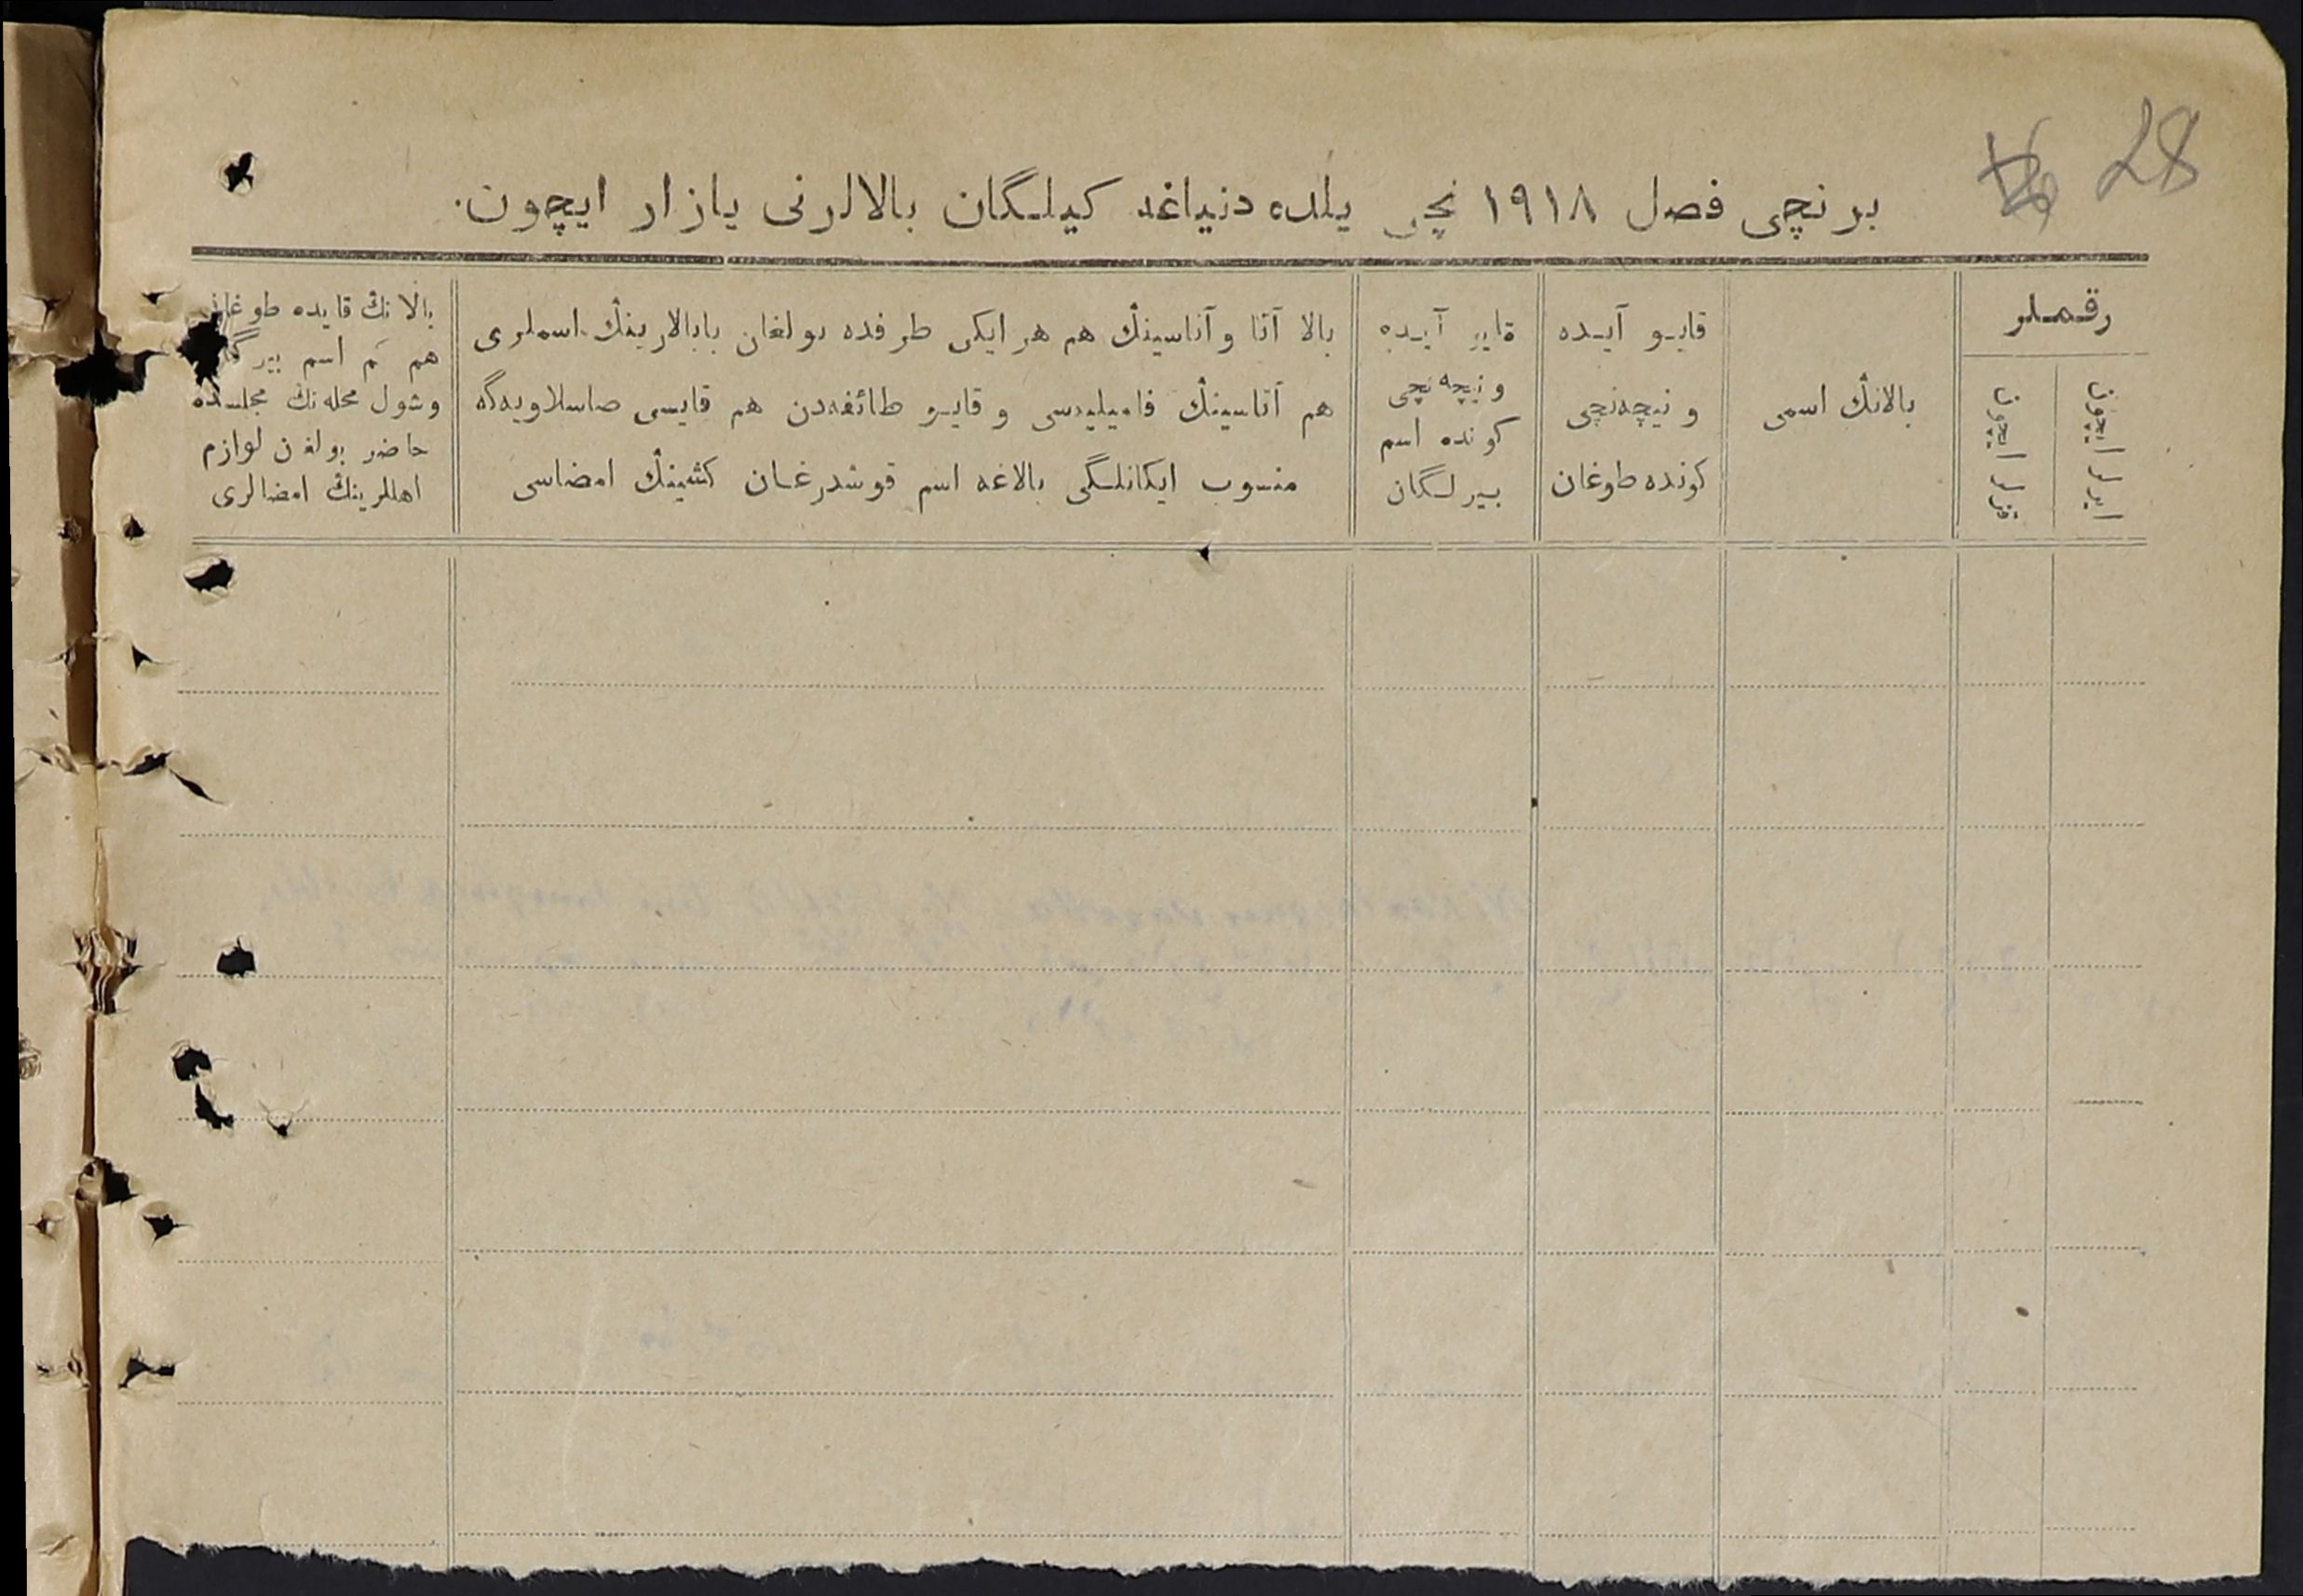 28
برنچی فصل ١٩١٨ نچی یلده دنیاغه کیلگان بالالرنی یازار ایچون.
رقملر
ایر بالالر
قز بالالر
بالانڭ اسمی
قایو آیده
و نیچه‌نچی
کونده طوغان
قایو آیده
و نیچه نچی
کونده اسم
بیرلگان
بالا آتا و آناسینڭ هم هر ایکی طرفده بولغان بابالارینڭ اسملری
هم آتاسینڭ فامیلیه‌سی و قایو طائفه‌دن هم قایسی صاسلاویه‌گه
منسوب ایکانلگی بالاغه اسم قوشدرغان کشینڭ امضاسی
بالا نڭ قایده طوغان
هم کم اسم بیرگان
و شول محله نڭ مجلسده
حاضر بولغن لوازم
اهللرینڭ امضالری